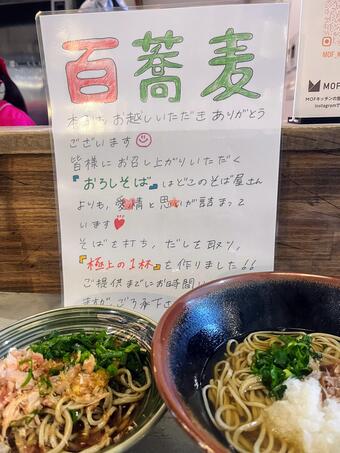 百蕎麦
本日は、お越しいただきありがとう
ございます
皆様にお召し上がりいただく
『おろしそば』はどこのそば屋さん
よりも、愛情と思いが詰まって
います
そばを打ち、だしを取り、
『極上の1杯』を作りました!!
ご提供までにお時間い
ますが、ご了承さ
MOF
MOFキッチンの
Instagramで